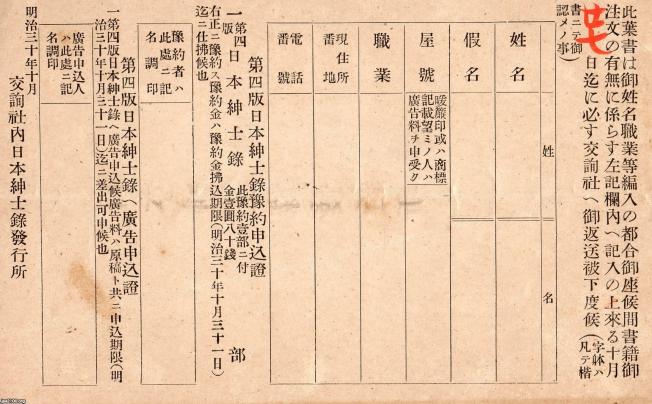 此葉書は御姓名職業等編入の都合御座候間書籍御
注文の有無に係らす左記欄内へ記入の上來る十月
廿七日迄に必す交詢社へ御返送被下度候(字躰ハ凡テ楷
書ニテ御認メノ事)
姓名
姓
名
假名
屋號
暖簾印或ハ商標
記載望ミノ人ハ
廣告料ヲ申受ク
職業
現住所
番地
電話
番號
第四版日本紳士錄豫約申込證
一第四版日本紳士錄 部
此豫約壹部ニ付
金壹圓八十錢
右正ニ豫約ス豫約金ハ豫約金拂込期限(明治三十年十月三十一日)
迄ニ仕拂候也
豫約者ハ
此處ニ記
名調印
第四版日本紳士錄へ廣告申込證
一第四版日本紳士錄へ廣告申込候廣告料ハ原稿ト共ニ申込期限(明
治三十年十月三十一日)迄ニ差出可申候也
廣告申込人
ハ此處ニ記
名調印
明治三十年十月
交詢社內日本紳士錄發行所